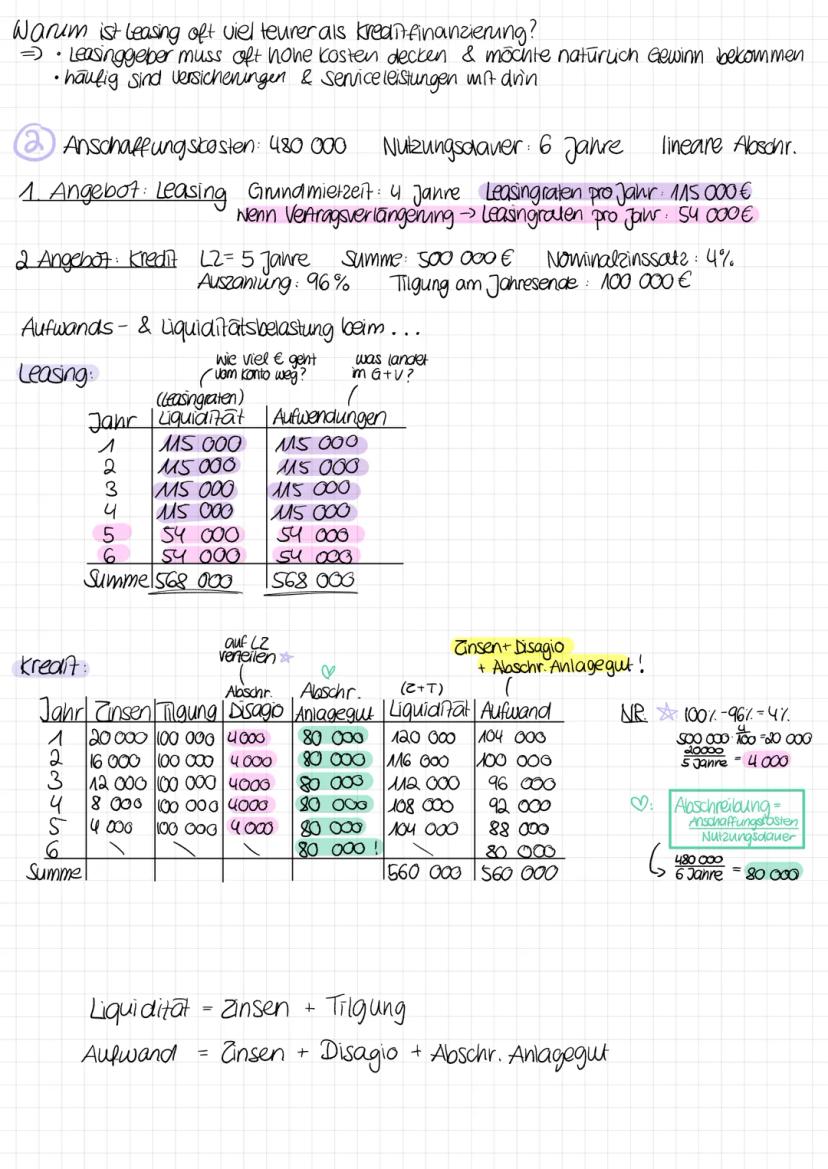 Warum ist Leasing oft viel teurer als Kreditfinanzierung?
=> • Leasinggeber muss oft hohe Kosten decken & möchte natürlich Gewinn bekommen
• häufig sind Versicherungen & Serviceleistungen mit drin
2 Anschaffungskosten: 480 000 Nutzungsdauer: 6 Jahre lineare Abschr.
1. Angebot: Leasing Grundmietzeit: 4 Jahre Leasingraten pro Jahr: 115 000 €
Wenn Vertragsverlängerung → Leasingraten pro Jahr: 54 000 €
2 Angebot: Kredit LZ = 5 Jahre Summe: 500 000 € Nominalzinssatz: 4%
Auszahlung: 96% Tilgung am Jahresende: 100 000 €
Aufwands- & Liquiditätsbelastung beim ...
Leasing:
wie viel € geht vom Konto weg?
was landet im G+V?
(Leasingraten)
Jahr Liquidität Aufwendungen
1 115 000 115 000
2 115 000 115 000
3 115 000 115 000
4 115 000 115 000
5 54 000 54 000
6 54 000 54 000
Summe 568 000 568 000
Kredit:
auf LZ verteilen ☆
♡
Zinsen + Disagio
+ Abschr. Anlagegut !
Jahr Zinsen Tilgung Abschr. Disagio Abschr. Anlagegut (Z+T) Liquidität Aufwand
1 20 000 100 000 4000 80 000 120 000 104 000
2 16 000 100 000 4 000 80 000 116 000 100 000
3 12 000 100 000 4000 80 000 112 000 96 000
4 8 000 100 000 4000 80 000 108 000 92 000
5 4 000 100 000 4 000 80 000 104 000 88 000
6 \ \ \ 80 000 ! \ 80 000
Summe 560 000 560 000
NR. ☆ 100% - 96% = 4%
500 000 · 4/100 = 20 000
20000 / 5 Jahre = 4 000
♡: Abschreibung =
Anschaffungskosten
Nutzungsdauer
480 000 / 6 Jahre = 80 000
Liquidität = Zinsen + Tilgung
Aufwand = Zinsen + Disagio + Abschr. Anlagegut